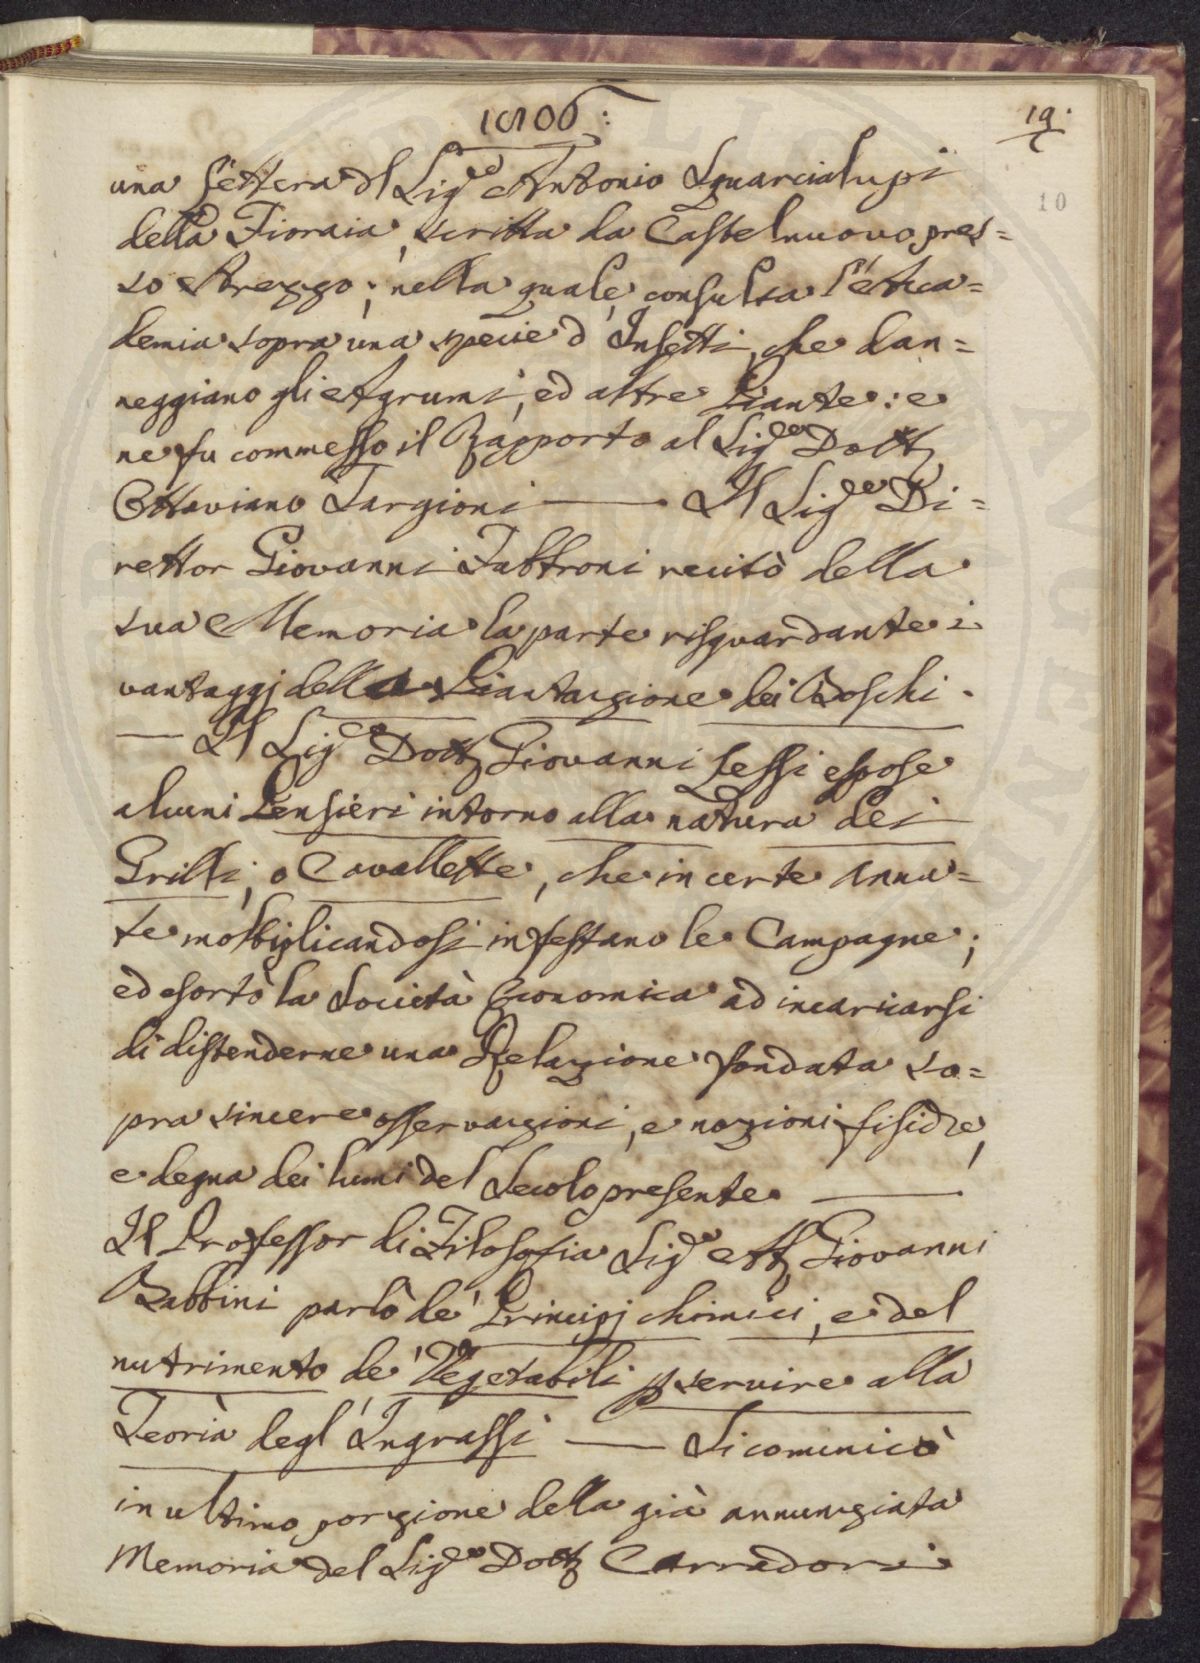 1806:
19.
10
una Lettera del Sig.e Antonio Squarcialupi
della Fioraia, scritta da Castelnuovo pres=
so Arezzo; nella quale consulta l'Aca=
demia sopra una specie d'Insetti, che dan=
neggiano gli Agrumi, ed altre Piante: e
ne fu commesso il Rapporto al Sig.re Dott.
Ottaviano Targioni — Il Sig.re Di=
rettor Giovanni Fabbroni recitò della
sua Memoria la parte risguardante i
vantaggj della Piantazione dei Boschi.
— Il Sig.re Dott. Giovanni Lessi espose
alcuni Pensieri intorno alla natura dei
Grilli, o Cavallette, che in certe Anna=
te moltiplicandosi infestano le Campagne;
ed esortò la Società Economica ad incaricarsi
di distenderne una Relazione fondata so=
pra sincere osservazioni, e nozioni fisiche,
e degna dei lumi del Secolo presente. —
Il Professor di Filosofia Sig.re Ab. Giovanni
Babbini parlò de' Principj chimici, e del
nutrimento de' Vegetabili p servire alla
Teoria degl'Ingrassi — Si comunicò
in ultimo porzione della già annunziata
Memoria del Sig.re Dott. Carradori